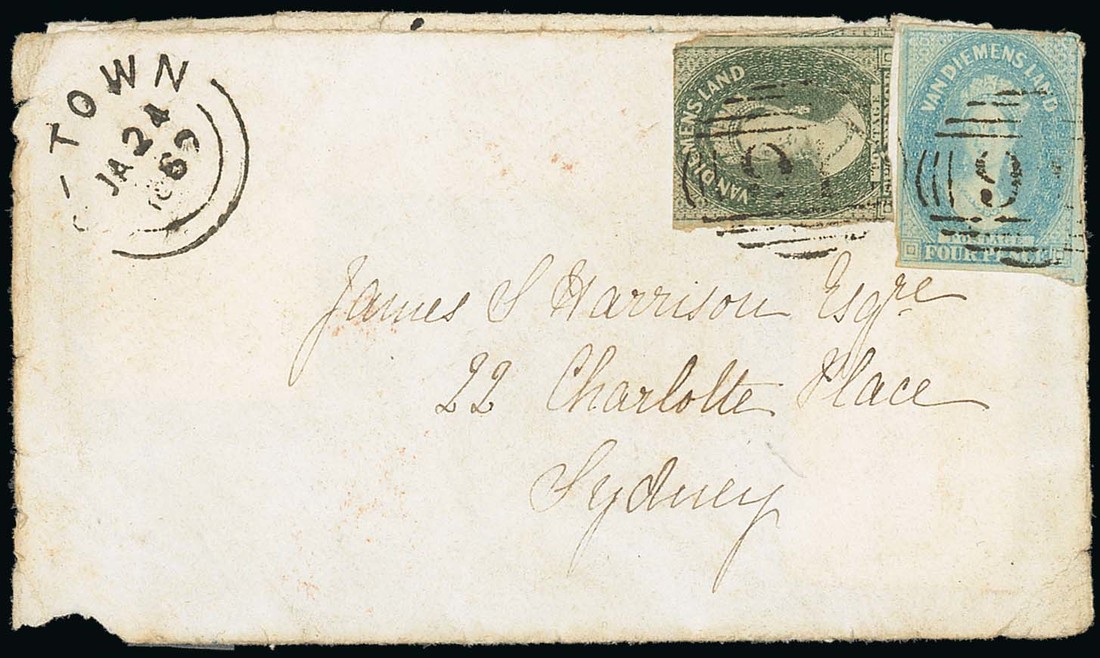 -TOWN
JA 24
VAN DIEMENS LAND
POSTAGE
VAN DIEMENS LAND
POSTAGE
FOUR PENCE
James S Harrison Esqre
22 Charlotte Place
Sydney